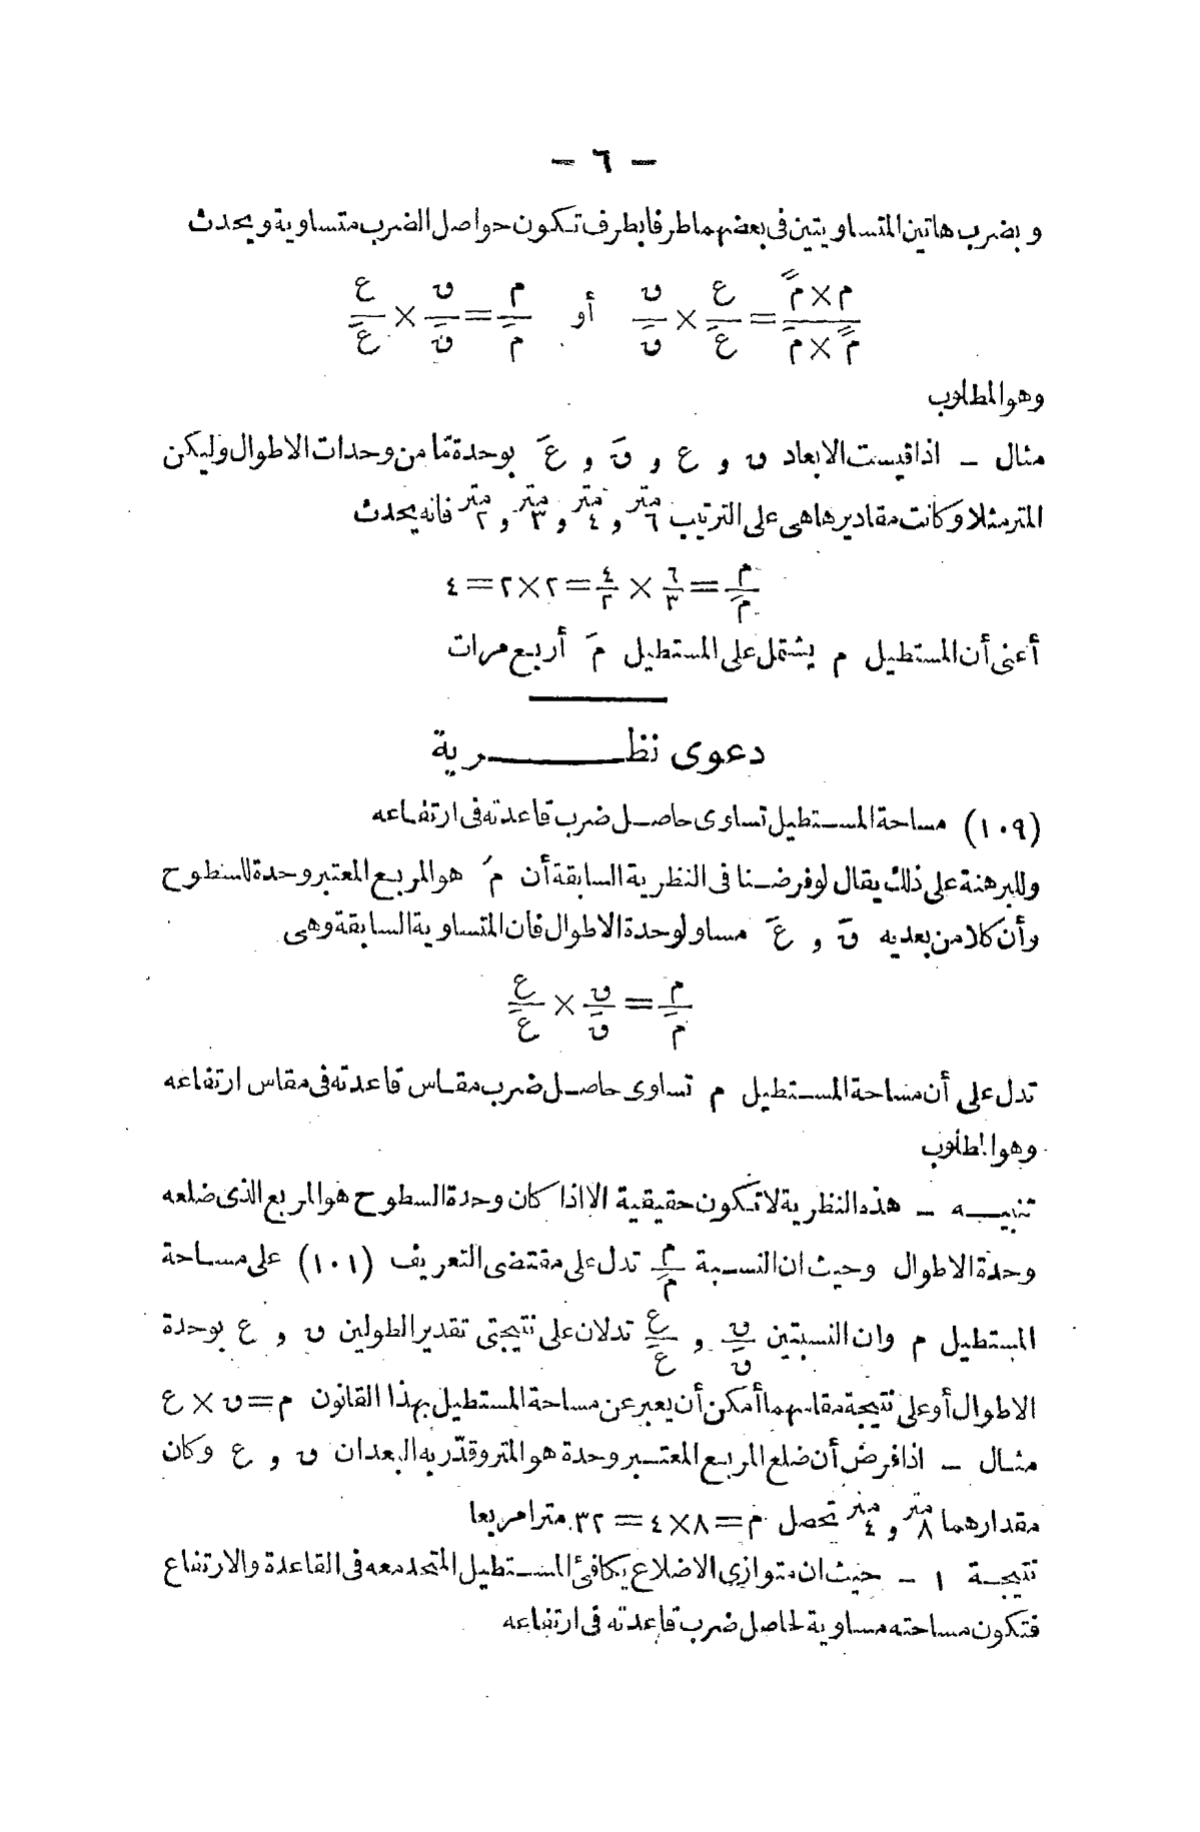 — ٦ —
وبضرب هاتين المتساويتين فى بعضهما طرفا بطرف تكون حواصل الضرب متساوية ويحدث
م×م̋/م̋×م′ = ع/ع′ × ق/ق′ أو م/م′ = ق/ق′ × ع/ع′
وهو المطلوب
مثال — اذا قيست الابعاد ق و ع و ق′ و ع′ بوحدة مّا من وحدات الاطوال وليكن
المتر مثلا وكانت مقاديرها هى على الترتيب ٦ متر و ٤ متر و ٣ متر و ٢ متر فانه يحدث
م/م′ = ٦/٣ × ٤/٢ = ٢×٢ = ٤
أعنى أن المستطيل م يشتمل على المستطيل م′ أربع مرات
دعوى نظرية
(١٠٩) مساحة المستطيل تساوى حاصل ضرب قاعدته فى ارتفاعه
وللبرهنة على ذلك يقال لو فرضنا فى النظرية السابقة أن م′ هو المربع المعتبر وحدة للسطوح
وأن كلا من بعديه ق′ و ع′ مساو لوحدة الاطوال فان المتساوية السابقة وهى
م/م′ = ق/ق′ × ع/ع′
تدل على أن مساحة المستطيل م تساوى حاصل ضرب مقاس قاعدته فى مقاس ارتفاعه
وهو المطلوب
تنبيه — هذه النظرية لا تكون حقيقية الا اذا كان وحدة السطوح هو المربع الذى ضلعه
وحدة الاطوال وحيث ان النسبة م/م′ تدل على مقتضى التعريف (١٠١) على مساحة
المستطيل م وان النسبتين ق/ق′ و ع/ع′ تدلان على نتيجتى تقدير الطولين ق و ع بوحدة
الاطوال أو على نتيجة مقاسهما أمكن أن يعبر عن مساحة المستطيل بهذا القانون م = ق × ع
مثال — اذا فرض أن ضلع المربع المعتبر وحدة هو المتر وقدّر به البعدان ق و ع وكان
مقدارهما ٨ متر و ٤ متر تحصل م = ٨×٤ = ٣٢ مترا مربعا
نتيجة ١ — حيث ان متوازى الاضلاع يكافئ المستطيل المتحد معه فى القاعدة والارتفاع
فتكون مساحته مساوية لحاصل ضرب قاعدته فى ارتفاعه